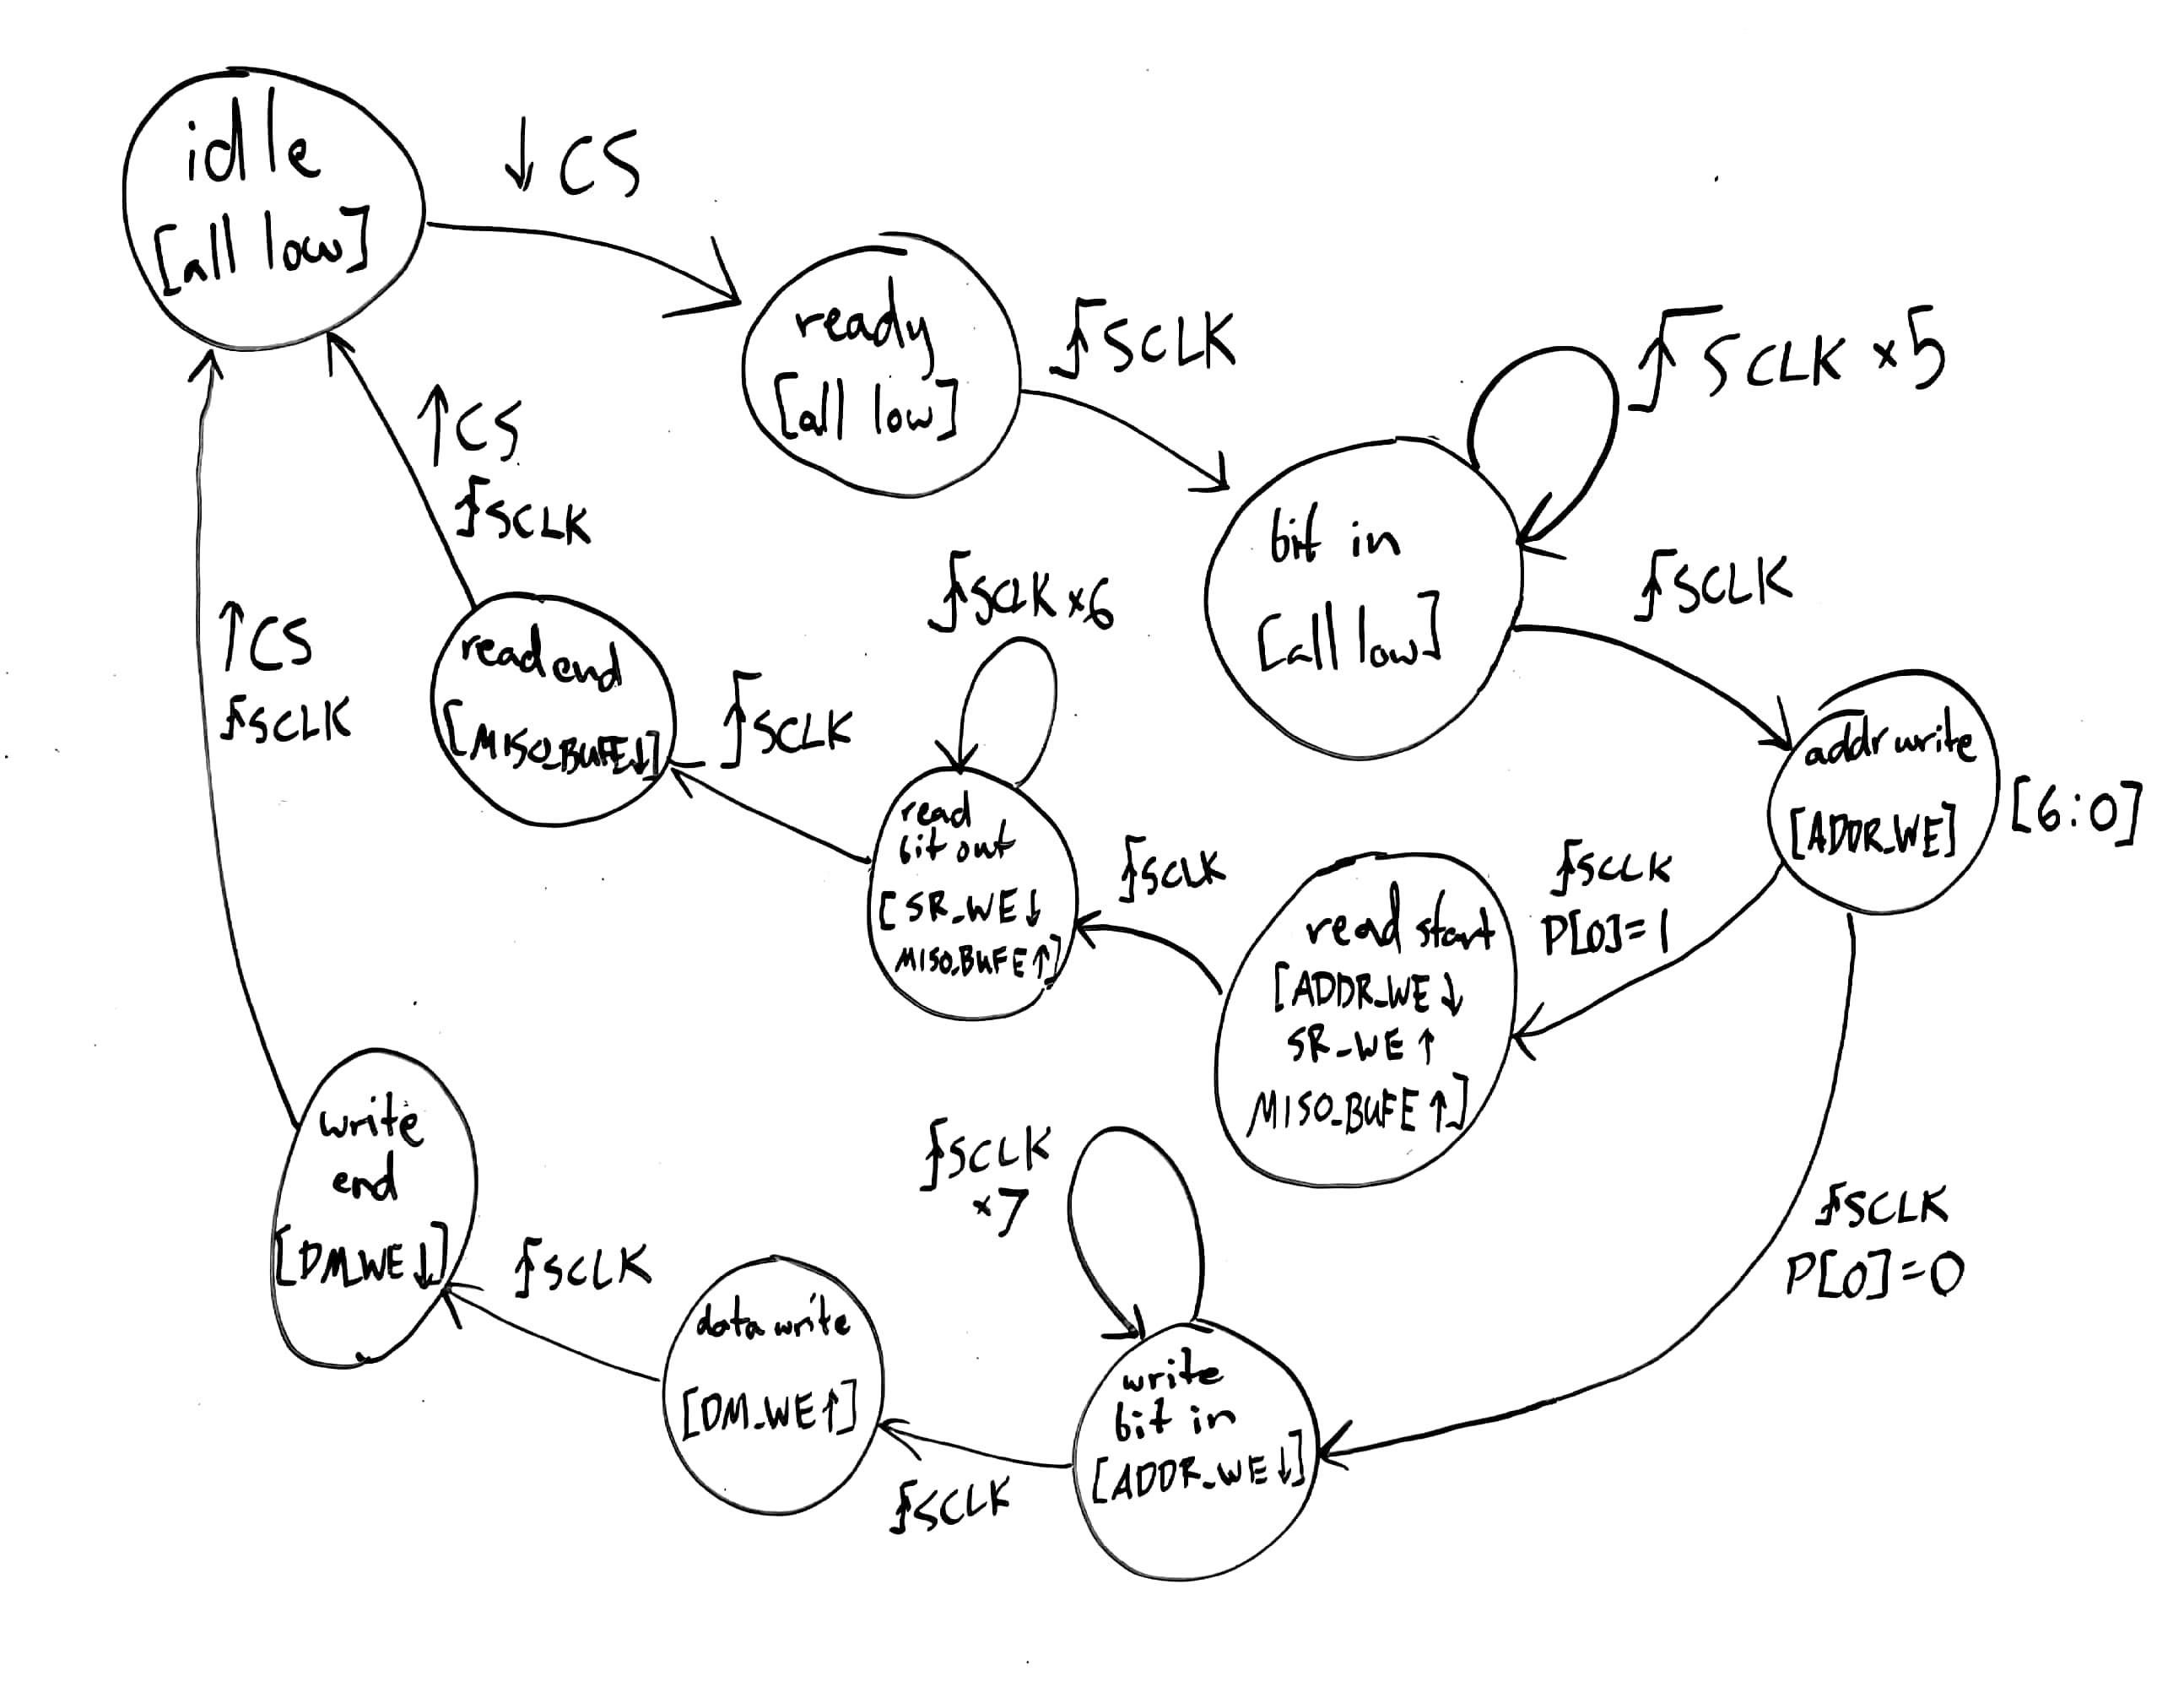 idle
[all low]
↓CS
ready
[all low]
↑SCLK
↑SCLK ×5
bit in
[all low]
↑SCLK
addr write
[ADDR_WE]
[6:0]
↑SCLK
P[0]=1
read start
[ADDR_WE↓
SR_WE↑
MISO_BUFE↑]
↑SCLK
↑SCLK ×6
read
bit out
[SR_WE↓
MISO_BUFE↑]
↑SCLK
read end
[MISO_BUFE↓]
↑CS
↑SCLK
↑SCLK
P[0]=0
write
bit in
[ADDR_WE↓]
↑SCLK
×7
↑SCLK
data write
[DM_WE↑]
↑SCLK
write
end
[DM_WE↓]
↑CS
↑SCLK